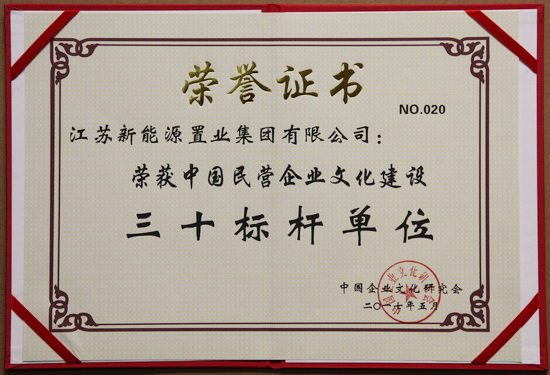 荣誉证书
NO.020
江苏新能源置业集团有限公司：
荣获中国民营企业文化建设
三十标杆单位
中国企业文化研究会
二〇一六年五月